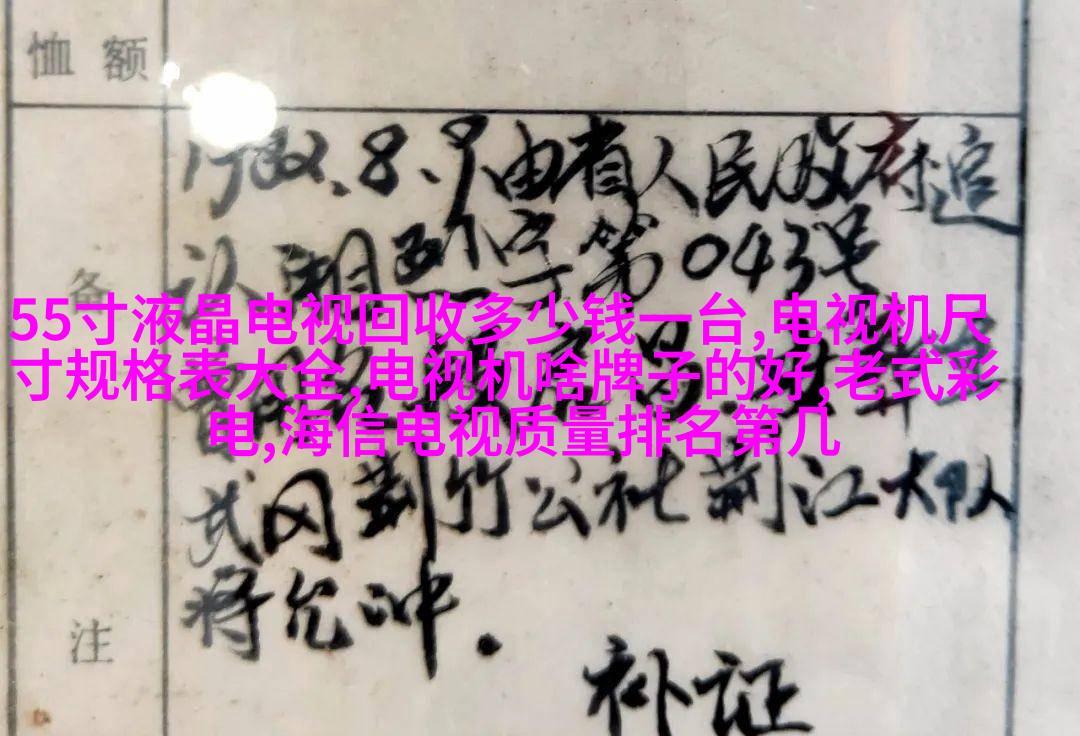 恤额
1982.8.9由省人民政府追
认湘烈字第043号
备
55寸液晶电视回收多少钱一台,电视机尺
寸规格表大全,电视机啥牌子的好,老式彩
电,海信电视质量排名第几
武冈荆竹公社荆江大队
蒋允冲.
注
补证